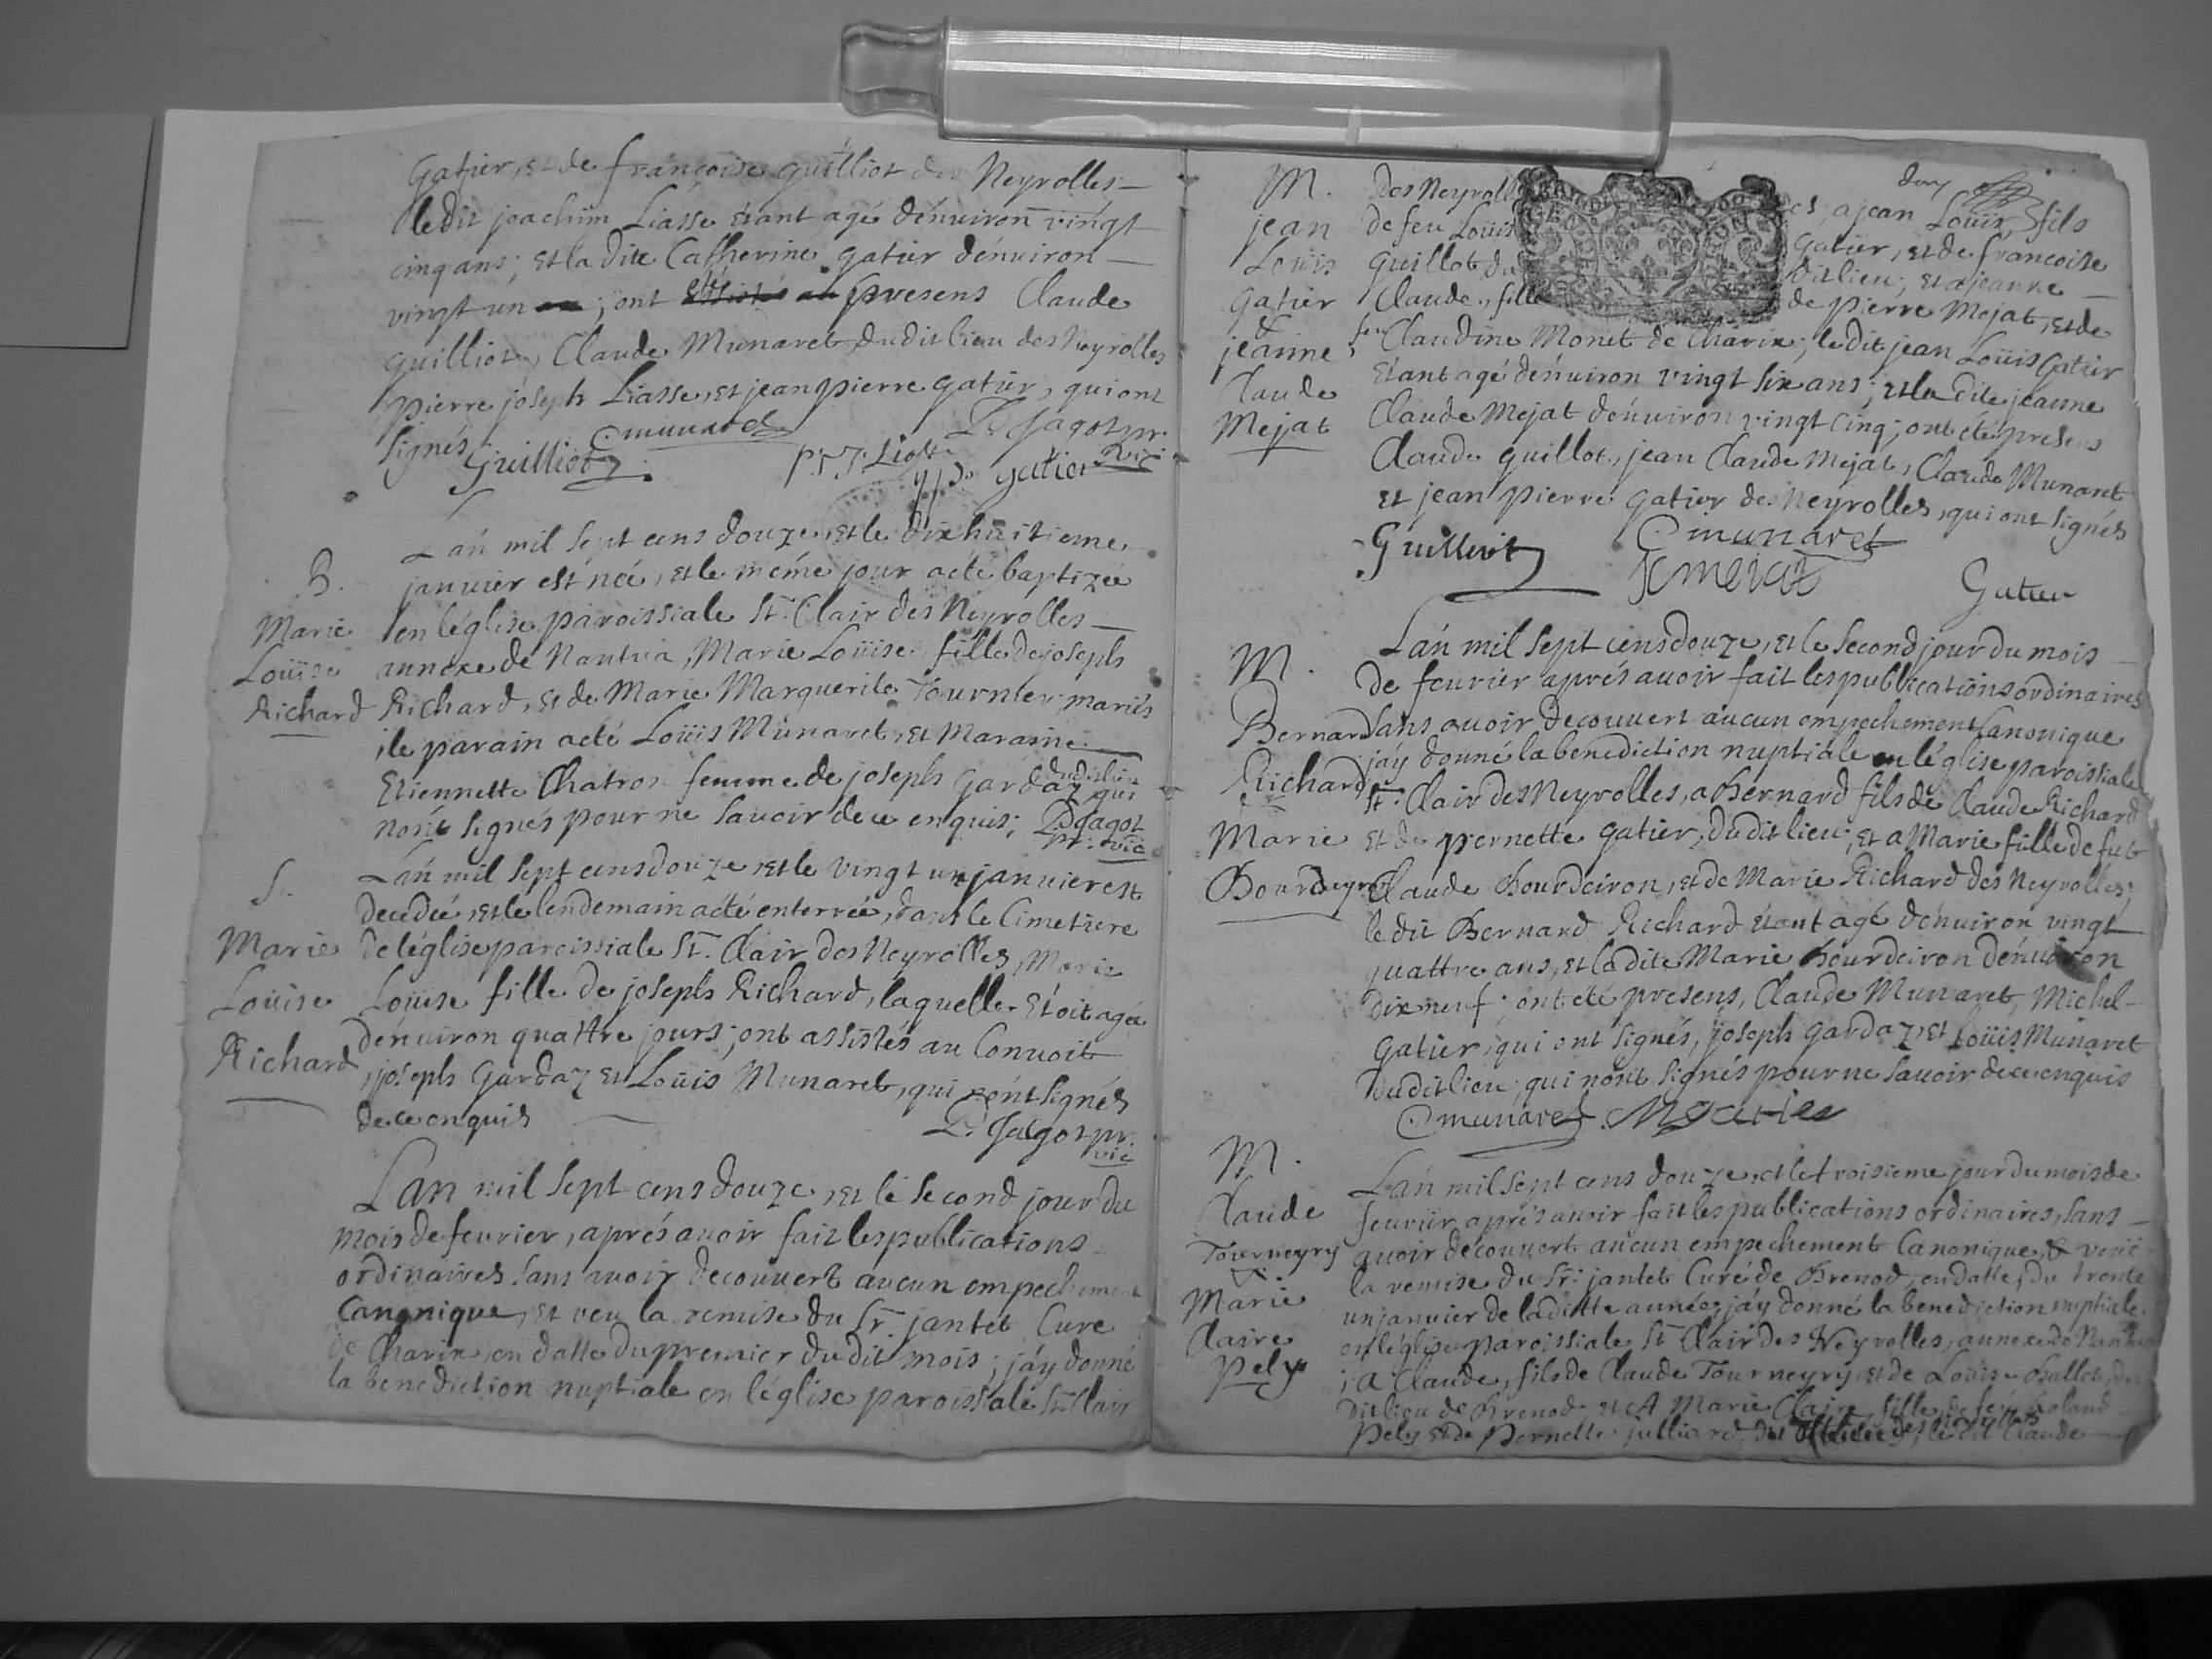 Gatier, et de françoise guilliot des Neyrolles
ledit joachim Liasse étant agé dénuiron vingt
cinq ans; et la dite Catherine gatier dénuiron
vingt un ; ont eté presens Claude
guilliot, Claude Munaret dudit lieu des Neyrolles
pierre joseph Liasse, et jean pierre gatier, qui ont
signés
Cmunaret
Guilliot
gatier
B.
Marie
Loüise
Richard
Lan mil sept cens douze, et le dix huitieme
januier est née, et le méme jour a eté baptizée
en léglise paroissiale St. Clair des Neyrolles
annexe de Nantua, Marie Loüise fille de joseph
Richard, et de Marie Marguerite Tournier mariés
, le parain a eté Loüis Munaret, et Maraine
Etiennette Chatron femme de joseph Gardaz dudit lieu qui
nont signés pour ne sauoir de ce enquis; Jagot
pr. vic
S.
Marie
Loüise
Richard
Lan mil sept cens douze et le vingt un januier est
decedée, et le lendemain a eté enterrée, dans le Cimetiere
de léglise paroissiale St. Clair des Neyrolles, Marie
Loüise fille de joseph Richard, laquelle etoit agée
dénuiron quattre jours; ont assistés au Conuoit
, joseph Gardaz et Loüis Munaret, qui nont signés
de ce enquis
Jagot pr.
vic
Lan mil sept cens douze, et le second jour du
mois de feurier, aprés auoir fait les publications
ordinaires sans auoir decouuert aucun empechement
Canonique, et veu la remise du Sr. jantet Curé
de Charix, en datte du premier dudit mois; jáy donné
la benediction nuptiale en léglise paroissiale St. Clair
M.
jean
Loüis
Gatier
&
jeanne
Claude
Mejat
des Neyrolles, a jean Loüis, fils
de feu Loüis Gatier, et de françoise
Guillot dudit lieu; et a jeanne
Claude, fille de pierre Mejat, et de
feu Claudine Monet de Charix; ledit jean Loüis Gatier
étant agé dénuiron vingt six ans; et la dite jeanne
Claude Mejat dénuiron vingt cinq; ont eté presens
Claude guillot, jean Claude Mejat, Claude Munaret
et jean pierre gatier des Neyrolles, qui ont signés
Guilliot
Cmunaret
Gatier
M.
Bernard
Richard
Marie
Bourdeyron
Lan mil sept cens douze, et le second jour du mois
de feurier aprés auoir fait les publications ordinaires
sans auoir decouuert aucun empechement Canonique
jáy donné la benediction nuptiale en léglise paroissiale
St. Clair des Neyrolles, a Bernard fils de Claude Richard
et de pernette gatier, dudit lieu; et a Marie fille de fut
Claude Bourdeiron, et de Marie Richard des Neyrolles;
ledit Bernard Richard étant agé dénuiron vingt
quattre ans, et la dite Marie Bourdeiron dénuiron
dix neuf; ont eté presens, Claude Munaret, Michel
Gatier, qui ont signés, joseph gardaz, et Loüis Munaret
dudit lieu, qui nont signés pour ne sauoir de ce enquis
Cmunaret
M.
Claude
Tourneyry
Marie
Claire
Pely
Lan mil sept cens douze, et le troisieme jour du mois de
feurier, aprés auoir fait les publications ordinaires, sans
auoir decouuert aucun empechement Canonique, & veüe
la remise du Sr. jantet Curé de Brenod, en datte du trente
un januier de la ditte année; jáy donné la benediction nuptiale
en léglise paroissiale St. Clair des Neyrolles, annexe de Nantua
; a Claude, fils de Claude Tourneyry, et de Loüise Ballet, du
dit lieu de Brenod et A Marie Claire, fille de feu Roland
Pely et de Pernette julliard, des neyrolles, ledit Claude